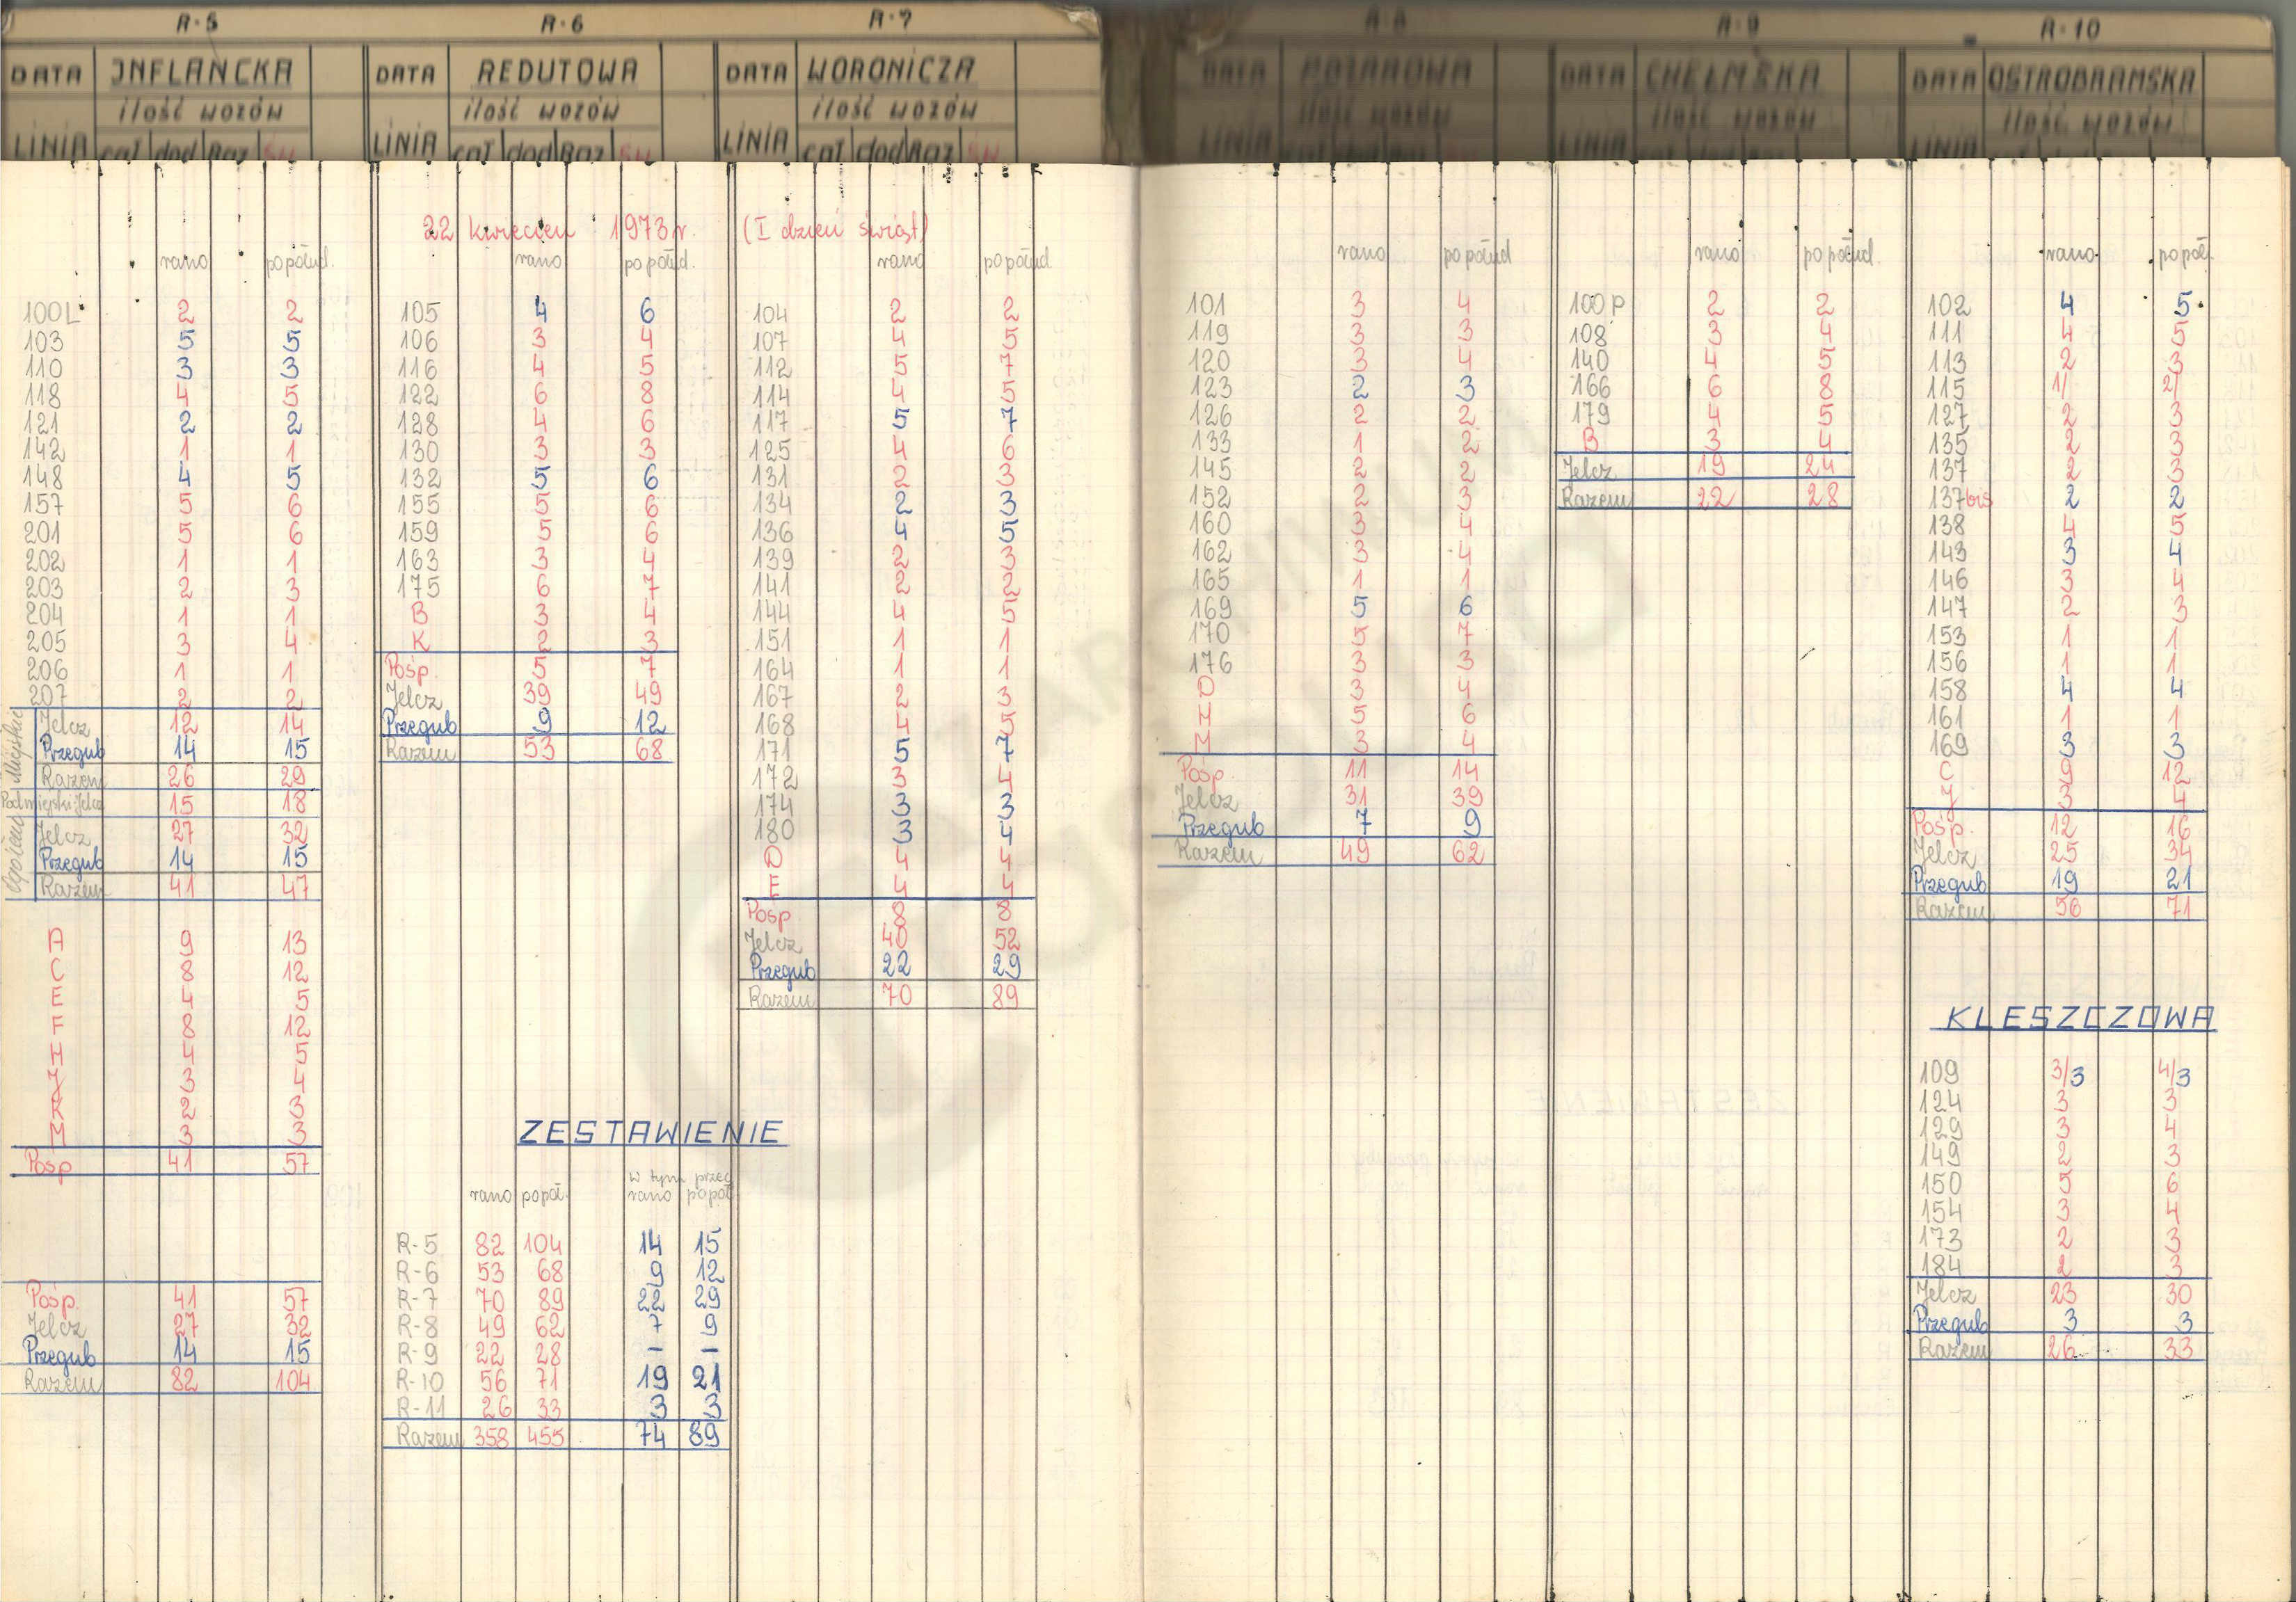 R-5
DATA INFLANCKA
ilość wozów
LINIA cał dod Raz
rano popołud.
100L 2 2
103 5 5
110 3 3
118 4 5
121 2 2
142 1 1
148 4 5
157 5 6
201 5 6
202 1 1
203 2 3
204 1 1
205 3 4
206 1 1
207 2 2
Miejskie
Jelcz 12 14
Przegub 14 15
Razem 26 29
Podmiejski Jelcz 15 18
Ogółem
Jelcz 27 32
Przegub 14 15
Razem 41 47
A 9 13
C 8 12
E 4 5
F 8 12
H 4 5
J 3 4
K 2 3
M 3 3
Posp 41 57
Pośp. 41 57
Jelcz 27 32
Przegub 14 15
Razem 82 104
R-6
DATA REDUTOWA
ilość wozów
LINIA cał dod Raz
22 kwiecień 1973 r. (I dzień świąt)
rano popołud.
105 4 6
106 3 4
116 4 5
122 6 8
128 4 6
130 3 3
132 5 6
155 5 6
159 5 6
163 3 4
175 6 7
B 3 4
K 2 3
Pośp. 5 7
Jelcz 39 49
Przegub 9 12
Razem 53 68
ZESTAWIENIE
w tym przeg
rano popoł. rano popoł.
R-5 82 104 14 15
R-6 53 68 9 12
R-7 70 89 22 29
R-8 49 62 7 9
R-9 22 28 - -
R-10 56 71 19 21
R-11 26 33 3 3
Razem 358 455 74 89
R-7
DATA WORONICZA
ilość wozów
LINIA cał dod Raz
rano popołud
104 2 2
107 4 5
112 5 7
114 4 5
117 5 7
125 4 6
131 2 3
134 2 3
136 4 5
139 2 3
141 2 2
144 4 5
151 1 1
164 1 1
167 2 3
168 4 5
171 5 7
172 3 4
174 3 3
180 3 4
D 4 4
E 4 4
Posp 8 8
Jelcz 40 52
Przegub 22 29
Razem 70 89
R-8
DATA
ilość wozów
LINIA
rano popołud
101 3 4
119 3 3
120 3 4
123 2 3
126 2 2
133 1 2
145 2 2
152 2 3
160 3 4
162 3 4
165 1 1
169 5 6
170 5 7
176 3 3
D 3 4
H 5 6
M 3 4
Pośp. 11 14
Jelcz 31 39
Przegub 7 9
Razem 49 62
R-9
DATA CHEŁMSKA
ilość wozów
LINIA
rano popołud.
100P 2 2
108 3 4
140 4 5
166 6 8
179 4 5
B 3 4
Jelcz 19 24
Razem 22 28
R-10
DATA OSTROBRAMSKA
ilość wozów
LINIA
rano popoł
102 4 5
111 4 5
113 2 3
115 1/ 2/
127 2 3
135 2 3
137 2 3
137bis 2 2
138 4 5
143 3 4
146 3 4
147 2 3
153 1 1
156 1 1
158 4 4
161 1 1
169 3 3
C 9 12
J 3 4
Pośp. 12 16
Jelcz 25 34
Przegub 19 21
Razem 56 71
KLESZCZOWA
109 3/3 4/3
124 3 3
129 3 4
149 2 3
150 5 6
154 3 4
173 2 3
184 2 3
Jelcz 23 30
Przegub 3 3
Razem 26 33